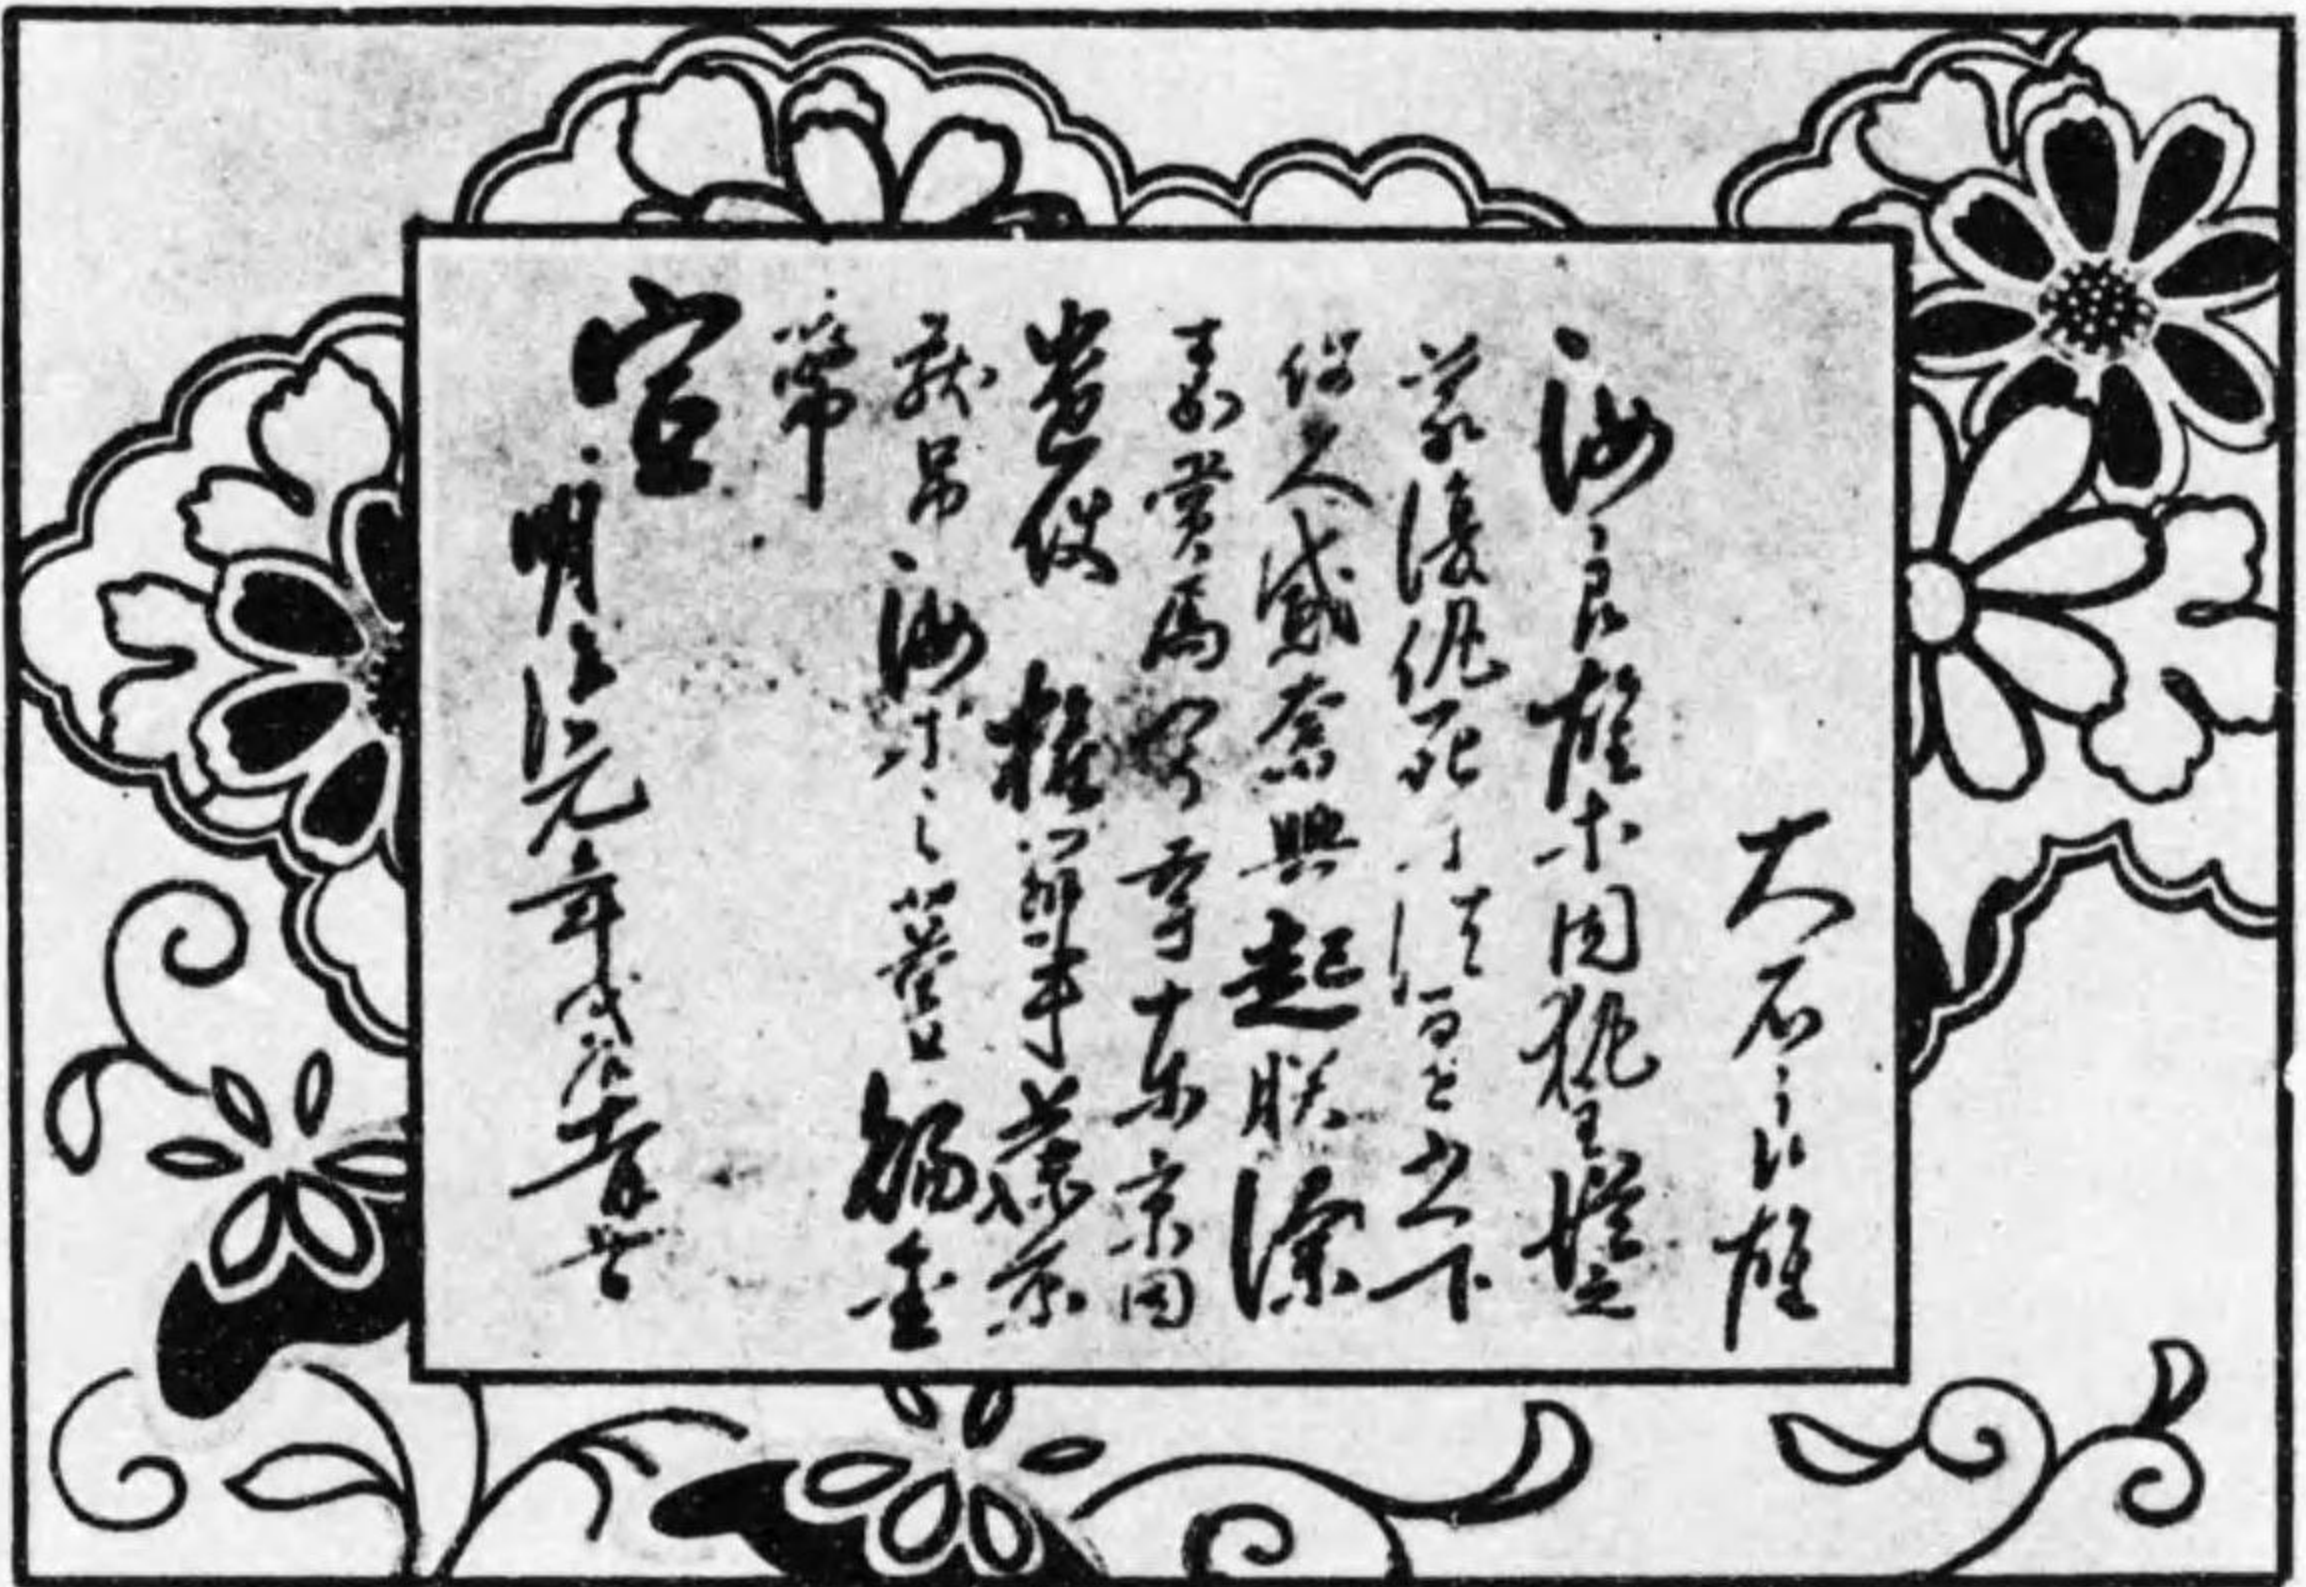 大石良雄
汝良雄等固執主從之
義復仇死于法百世之下
使人感奮興起朕深
嘉賞焉今幸東京因
遣使權辨事藤原
献弔汝等之墓且賜金
幣
宣
明治元年戊辰十一月五日